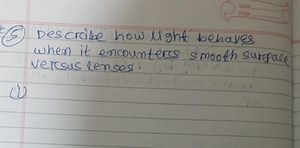 ⑤ Describe how light behaves
when it encounters smooth surface
versus lenses.
(1)